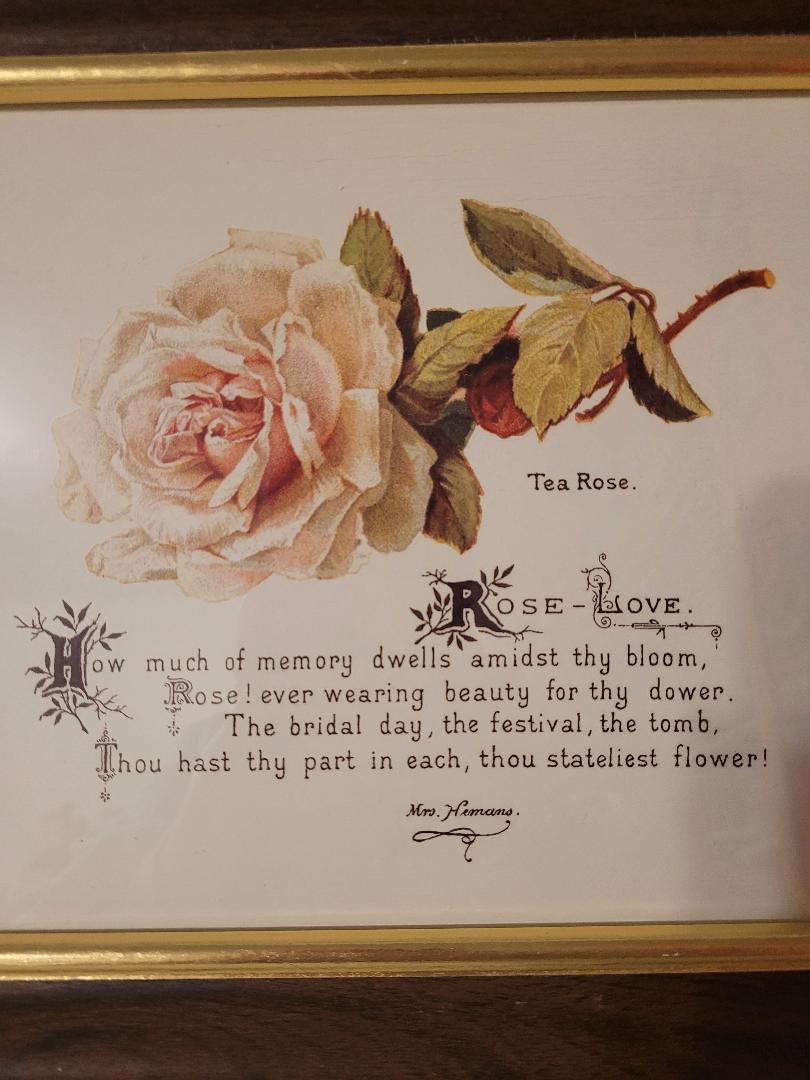 Tea Rose.
Rose-Love.
How much of memory dwells amidst thy bloom,
Rose! ever wearing beauty for thy dower.
The bridal day, the festival, the tomb,
Thou hast thy part in each, thou stateliest flower!
Mrs. Hemans.